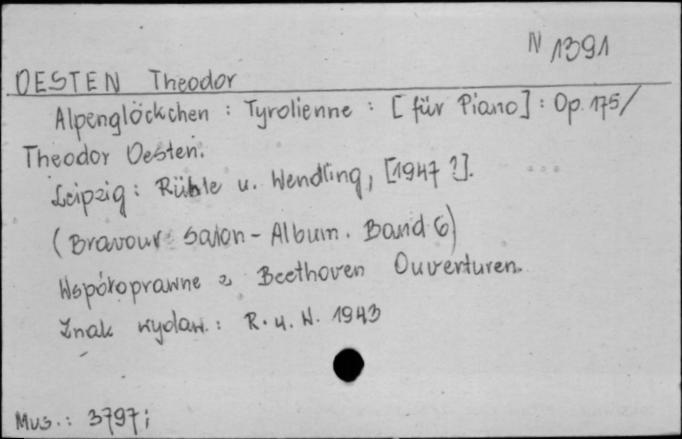 N 1391
OESTEN Theodor
Alpenglöckchen : Tyrolienne : [für Piano] : Op. 175/
Theodor Oesten.
Leipzig : Rühle u. Wendling, [1947 ?]. ...
(Bravour Salon - Album. Band 6)
Współoprawne z Beethoven Ouverturen.
Znak wydaw. : R. u. W. 1943
Mus. : 3797;